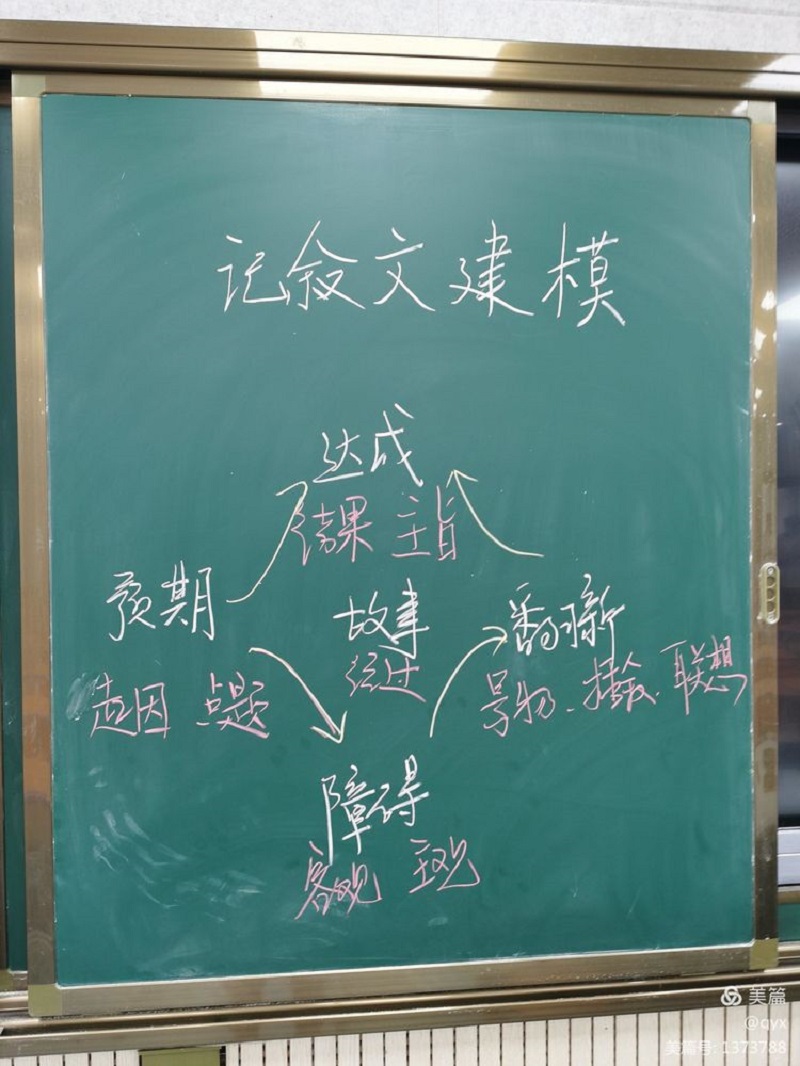 记叙文建模
达成
结果 主旨
预期
故事
翻新
起因 点题
经过
景物、描绘、联想
障碍
客观 主观
美篇
@qyx
美篇号: 1373788